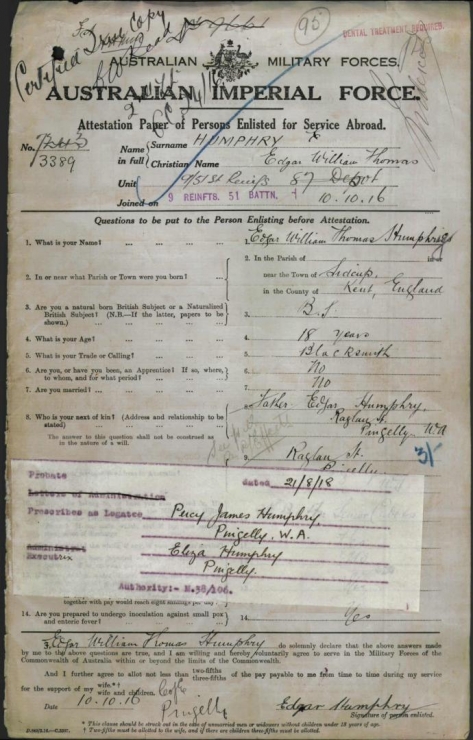 Certified True Copy
95
DENTAL TREATMENT REQUIRED.
AUSTRALIAN MILITARY FORCES.
AUSTRALIAN IMPERIAL FORCE.
Attestation Paper of Persons Enlisted for Service Abroad.
No. 3389
Name in full
Surname HUMPHRY
Christian Name Edgar William Thomas
Unit 9/51st Reinfs 87 Depot
Joined on 10.10.16
9 REINFTS. 51 BATTN.
Questions to be put to the Person Enlisting before Attestation.
1. What is your Name? ... 1. Edgar William Thomas Humphry
2. In or near what Parish or Town were you born? ... 2. In the Parish of
near the Town of Sidcup,
in the County of Kent, England
3. Are you a natural born British Subject or a Naturalized British Subject? (N.B.—If the latter, papers to be shown.) 3. B.S.
4. What is your Age? ... 4. 18 years
5. What is your Trade or Calling? ... 5. Blacksmith
6. Are you, or have you been, an Apprentice? If so, where, to whom, and for what period? 6. No
7. Are you married? ... 7. No
8. Who is your next of kin? (Address and relationship to be stated) 8. Father Edgar Humphry,
Raglan St.
Pingelly WA
The answer in this question shall not be construed as in the nature of a will.
9. Raglan St.
Pingelly
3/-
Probate
Letters of Administration dated 21/8/18
Prescribes as Legatee Percy James Humphry
Pingelly, W.A.
Administrat
Execut Eliza Humphry
Pingelly.
Authority:- N.38/106.
14. Are you prepared to undergo inoculation against small pox and enteric fever? 14. Yes
I, Edgar William Thomas Humphry do solemnly declare that the above answers
made by me to the above questions are true, and I am willing and hereby voluntarily agree to serve in the Military Forces of the
Commonwealth of Australia within or beyond the limits of the Commonwealth.
And I further agree to allot not less than two-fifths three-fifths of the pay payable to me from time to time during my service
for the support of my wife.*† wife and children.
Date 10.10.16
Pingelly
Edgar Humphry
Signature of person enlisted.
* This clause should be struck out in the case of unmarried men or widowers without children under 18 years of age.
† Two-fifths must be allotted to the wife, and if there are children three-fifths must be allotted.